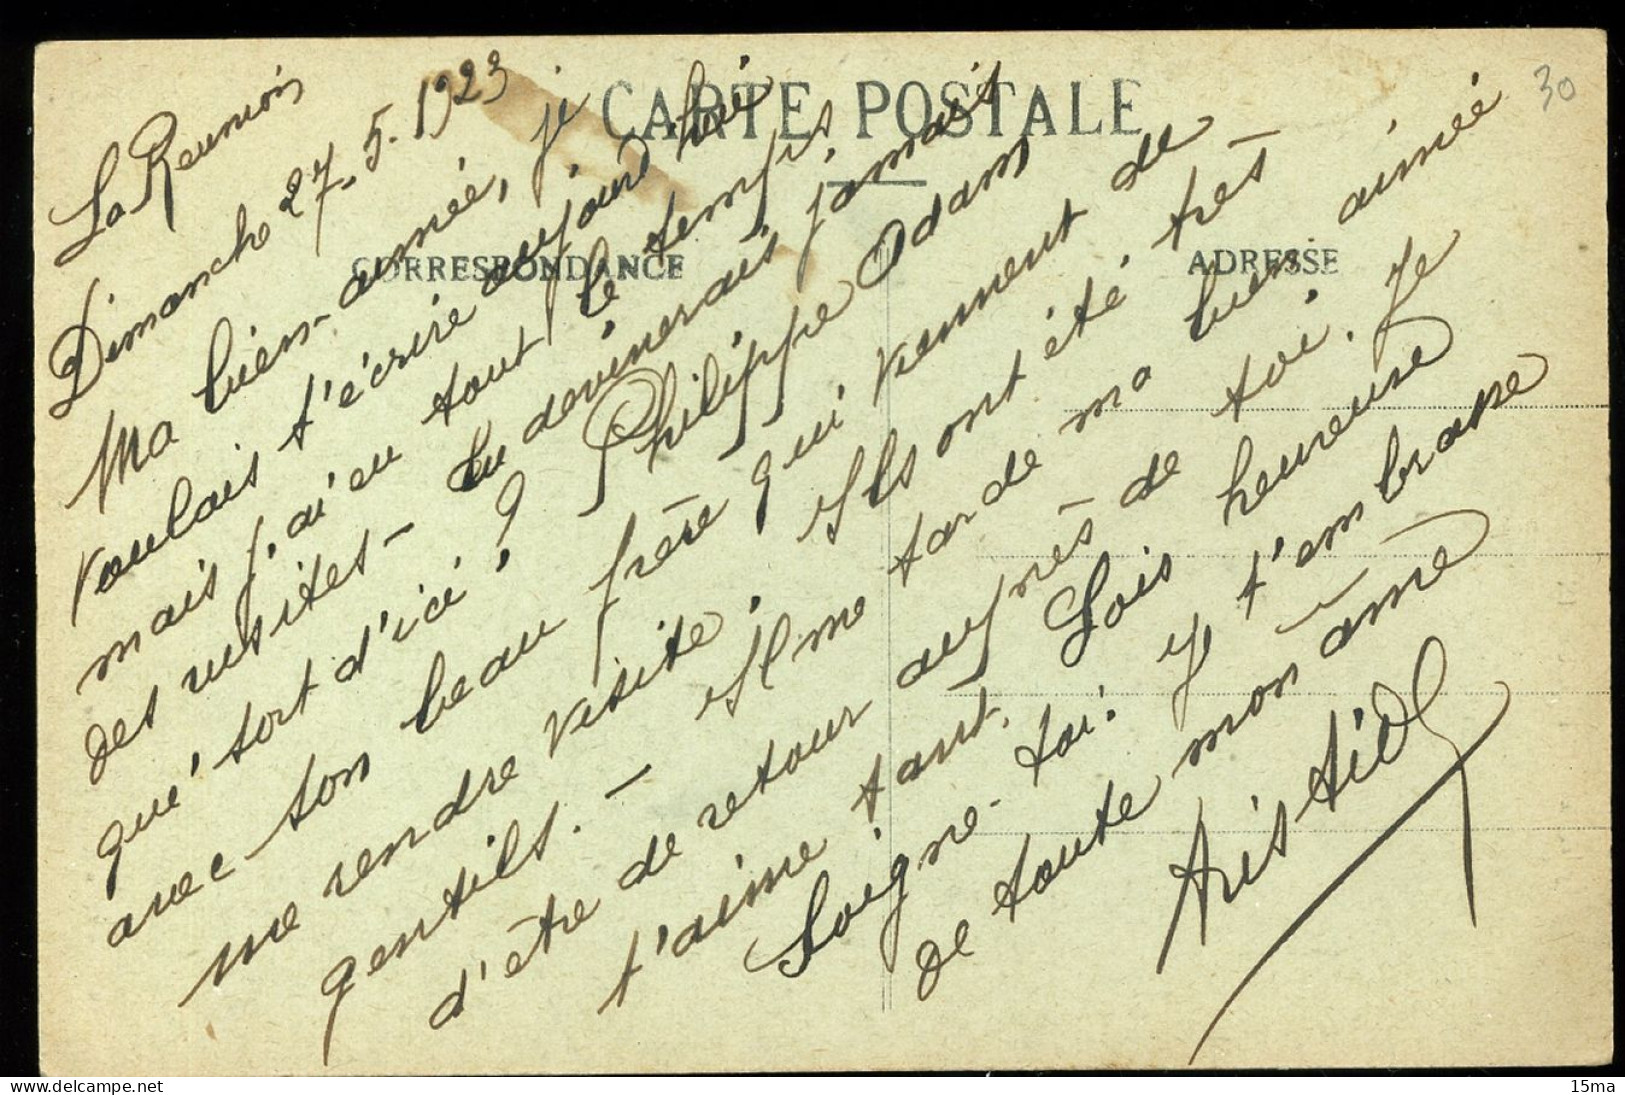 CARTE POSTALE
CORRESPONDANCE
ADRESSE
30
La Réunion
Dimanche 27.5.1923
Ma bien-aimée, je
voulais t'écrire aujourd'hui
mais j'ai eu tout le temps
des visites - Tu devinerais jamais
qui sort d'ici ? Philippe Adam
avec son beau frère qui viennent de
me rendre visite. Ils ont été très
gentils. - Il me tarde ma bien aimée
d'être de retour auprès de toi. Je
t'aime tant. Sois heureuse
Soigne-toi. Je t'embrasse
de toute mon âme
Aristide
15ma